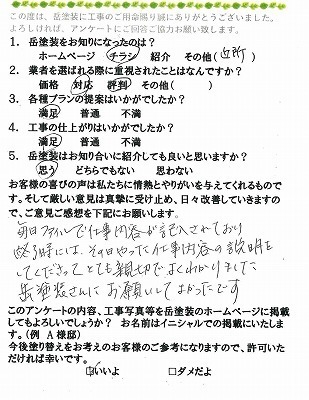 この度は、岳塗装に工事のご用命賜り誠にありがとうございました。
よろしければ、アンケートにご回答ご協力お願い致します。
1. 岳塗装をお知りになったのは?
ホームページ チラシ 紹介 その他(近所)
2. 業者を選ばれる際に重視されたことはなんですか?
価格 対応 評判 その他( )
3. 各種プランの提案はいかがでしたか?
満足 普通 不満
4. 工事の仕上がりはいかがでしたか?
満足 普通 不満
5. 岳塗装はお知り合いに紹介しても良いと思いますか?
思う どちらでもない 思わない
お客様の喜びの声は私たちに情熱とやりがいを与えてくれるものです。そして厳しい意見は真摯に受け止め、日々改善していきますので、ご意見ご感想を下記にお願いします。
毎日ファイルで仕事内容が記入されており
終る時には、その日やった仕事内容の説明を
してくださってとても親切でよくわかりました
岳塗装さんにお願いしてよかったです
このアンケートの内容、工事写真等を岳塗装のホームページに掲載
してもよろしいでしょうか? お名前はイニシャルでの掲載にいたし
ます。(例 A様邸)
今後塗り替えをお考えのお客様のご参考になりますので、許可いた
だければ幸いです。
□いいよ □ダメだよ